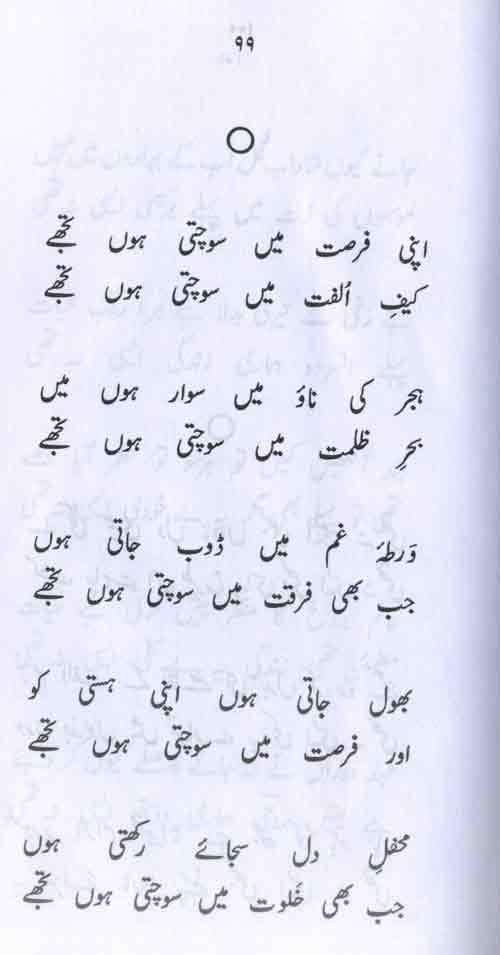 ۹۹
اپنی فرصت میں سوچتی ہوں تجھے
کیفِ اُلفت میں سوچتی ہوں تجھے
ہجر کی ناؤ میں سوار ہوں میں
بحرِ ظلمت میں سوچتی ہوں تجھے
وَرطۂ غم میں ڈوب جاتی ہوں
جب بھی فرقت میں سوچتی ہوں تجھے
بھول جاتی ہوں اپنی ہستی کو
اور فرصت میں سوچتی ہوں تجھے
محفلِ دل سجائے رکھتی ہوں
جب بھی خَلوت میں سوچتی ہوں تجھے